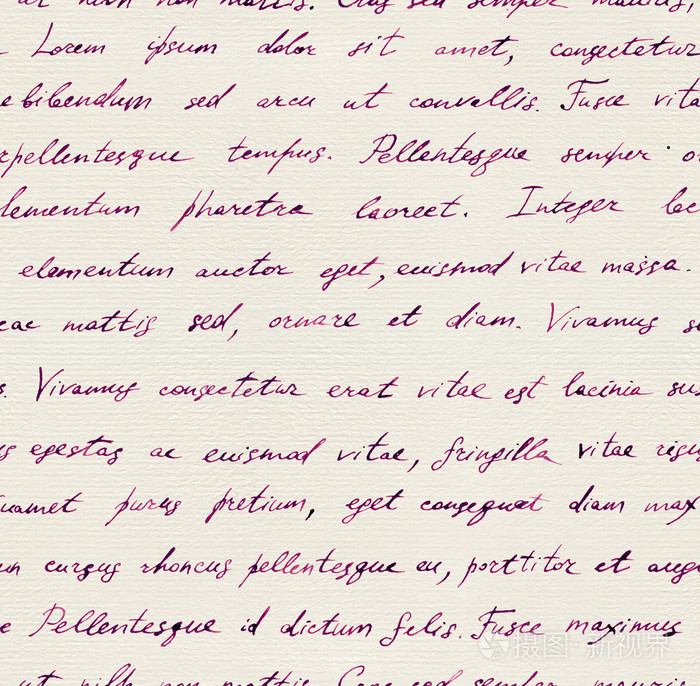 ut nibh non mattis. Cras sed semper mauris,
Lorem ipsum dolor sit amet, consectetur
e bibendum sed arcu ut convallis. Fusce vita
rpellentesque tempus. Pellentesque semper o
lementum pharetra laoreet. Integer lac
elementum auctor eget, euismod vitae massa.
cac mattis sed, ornare et diam. Vivamus se
s. Vivamus consectetur erat vitae est lacinia sus
us egestas ac euismod vitae, fringilla vitae risu
uamet purus pretium, eget consequat diam max
un cursus rhoncus pellentesque eu, porttitor et augu
e Pellentesque id dictum felis. Fusce maximus
ut nibh non mattis. Cras sed semper mauris
摄图·新视界